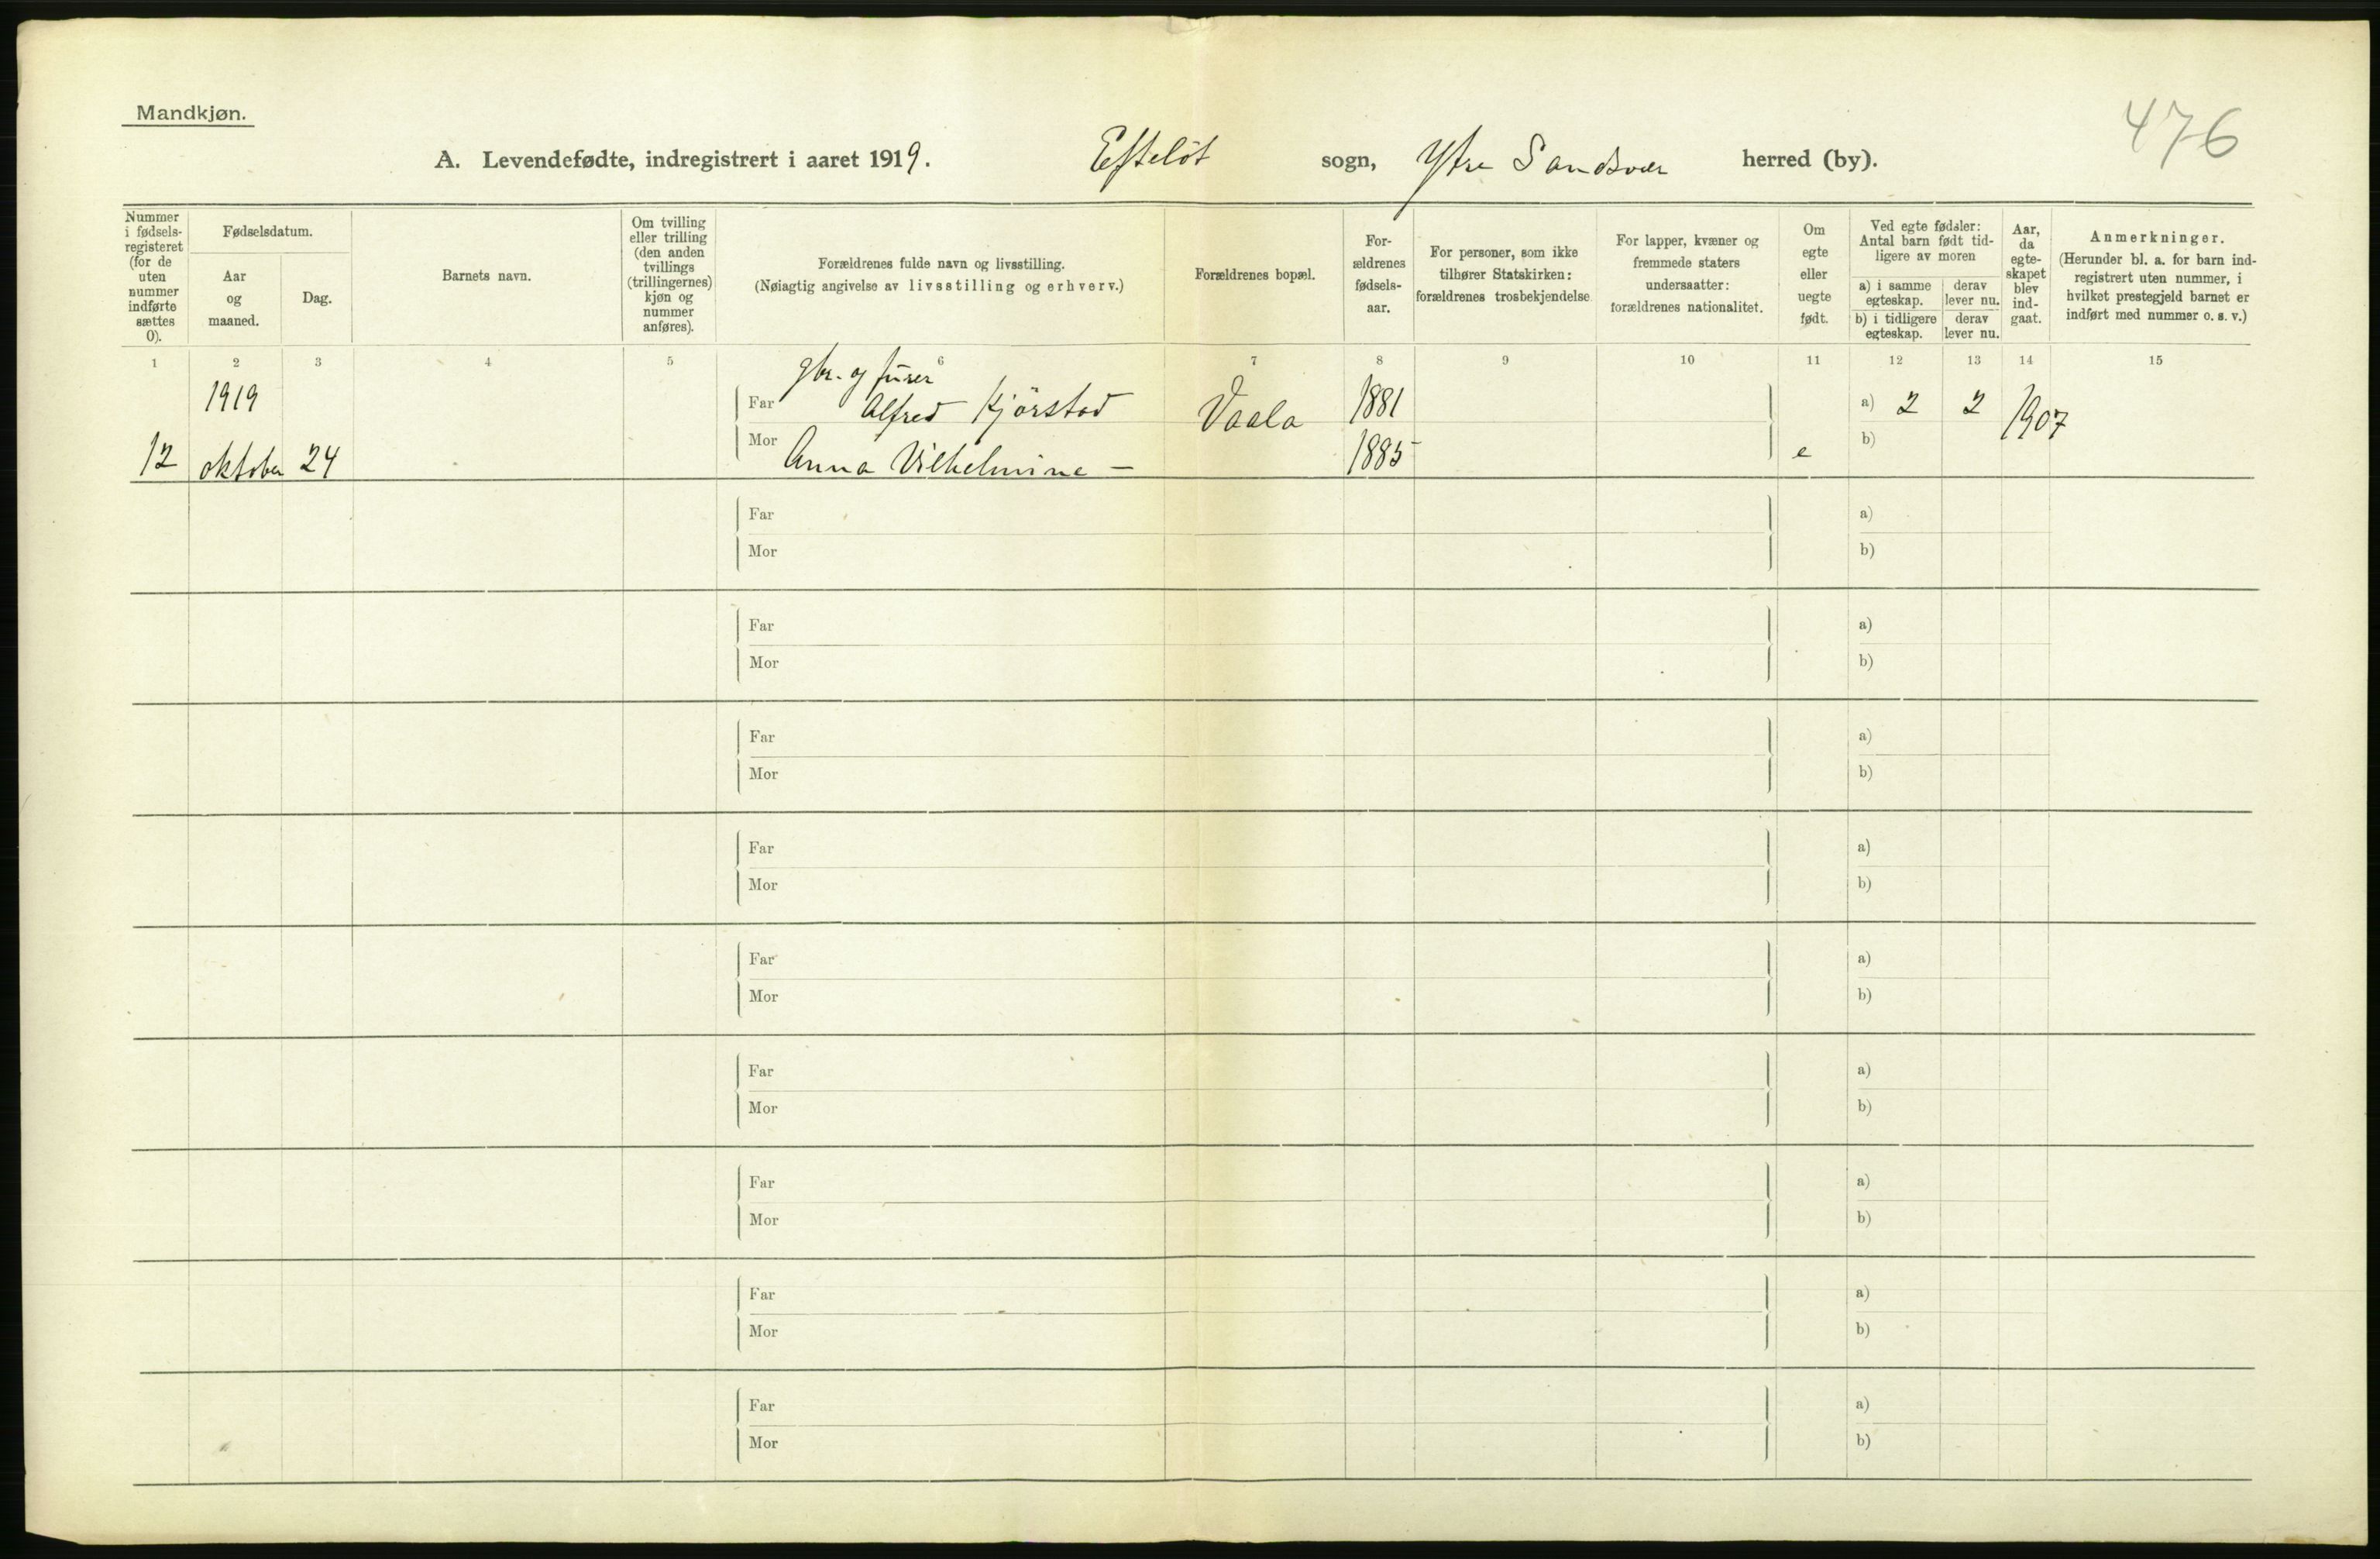 Mandkjøn.
476
A. Levendefødte, indregistrert i aaret 1919. Efteløt sogn, Ytre Sandsvær herred (by).
Nummer i fødsels-registeret (for de uten nummer indførte sættes 0).
Fødselsdatum.
Aar og maaned.
Dag.
Barnets navn.
Om tvilling eller trilling (den anden tvillings (trillingernes) kjøn og nummer anføres).
Forældrenes fulde navn og livsstilling.
(Nøiagtig angivelse av livsstilling og erhverv.)
Forældrenes bopæl.
For-ældrenes fødsels-aar.
For personer, som ikke tilhører Statskirken: forældrenes trosbekjendelse.
For lapper, kvæner og fremmede staters undersaatter: forældrenes nationalitet.
Om egte eller uegte født.
Ved egte fødsler: Antal barn født tid-ligere av moren
a) i samme egteskap.
derav lever nu.
b) i tidligere egteskap.
derav lever nu.
Aar, da egte-skapet blev ind-gaat.
Anmerkninger.
(Herunder bl. a. for barn ind-registrert uten nummer, i hvilket prestegjeld barnet er indført med nummer o. s. v.)
1 2 3 4 5 6 7 8 9 10 11 12 13 14 15
1919 gbr. og
Far Alfred Kjörstad Vaala 1881 a) 2 2 1907
12 oktober 24 Mor Anna Vilhelmine — 1885 e b)
Far a)
Mor b)
Far a)
Mor b)
Far a)
Mor b)
Far a)
Mor b)
Far a)
Mor b)
Far a)
Mor b)
Far a)
Mor b)
Far a)
Mor b)
Far a)
Mor b)